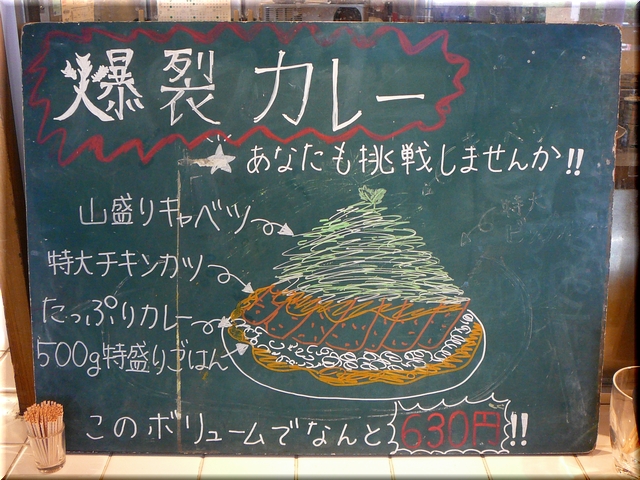 爆裂カレー
あなたも挑戦しませんか!!
山盛りキャベツ
特大チキンカツ
たっぷりカレー
500g特盛りごはん
このボリュームでなんと630円!!